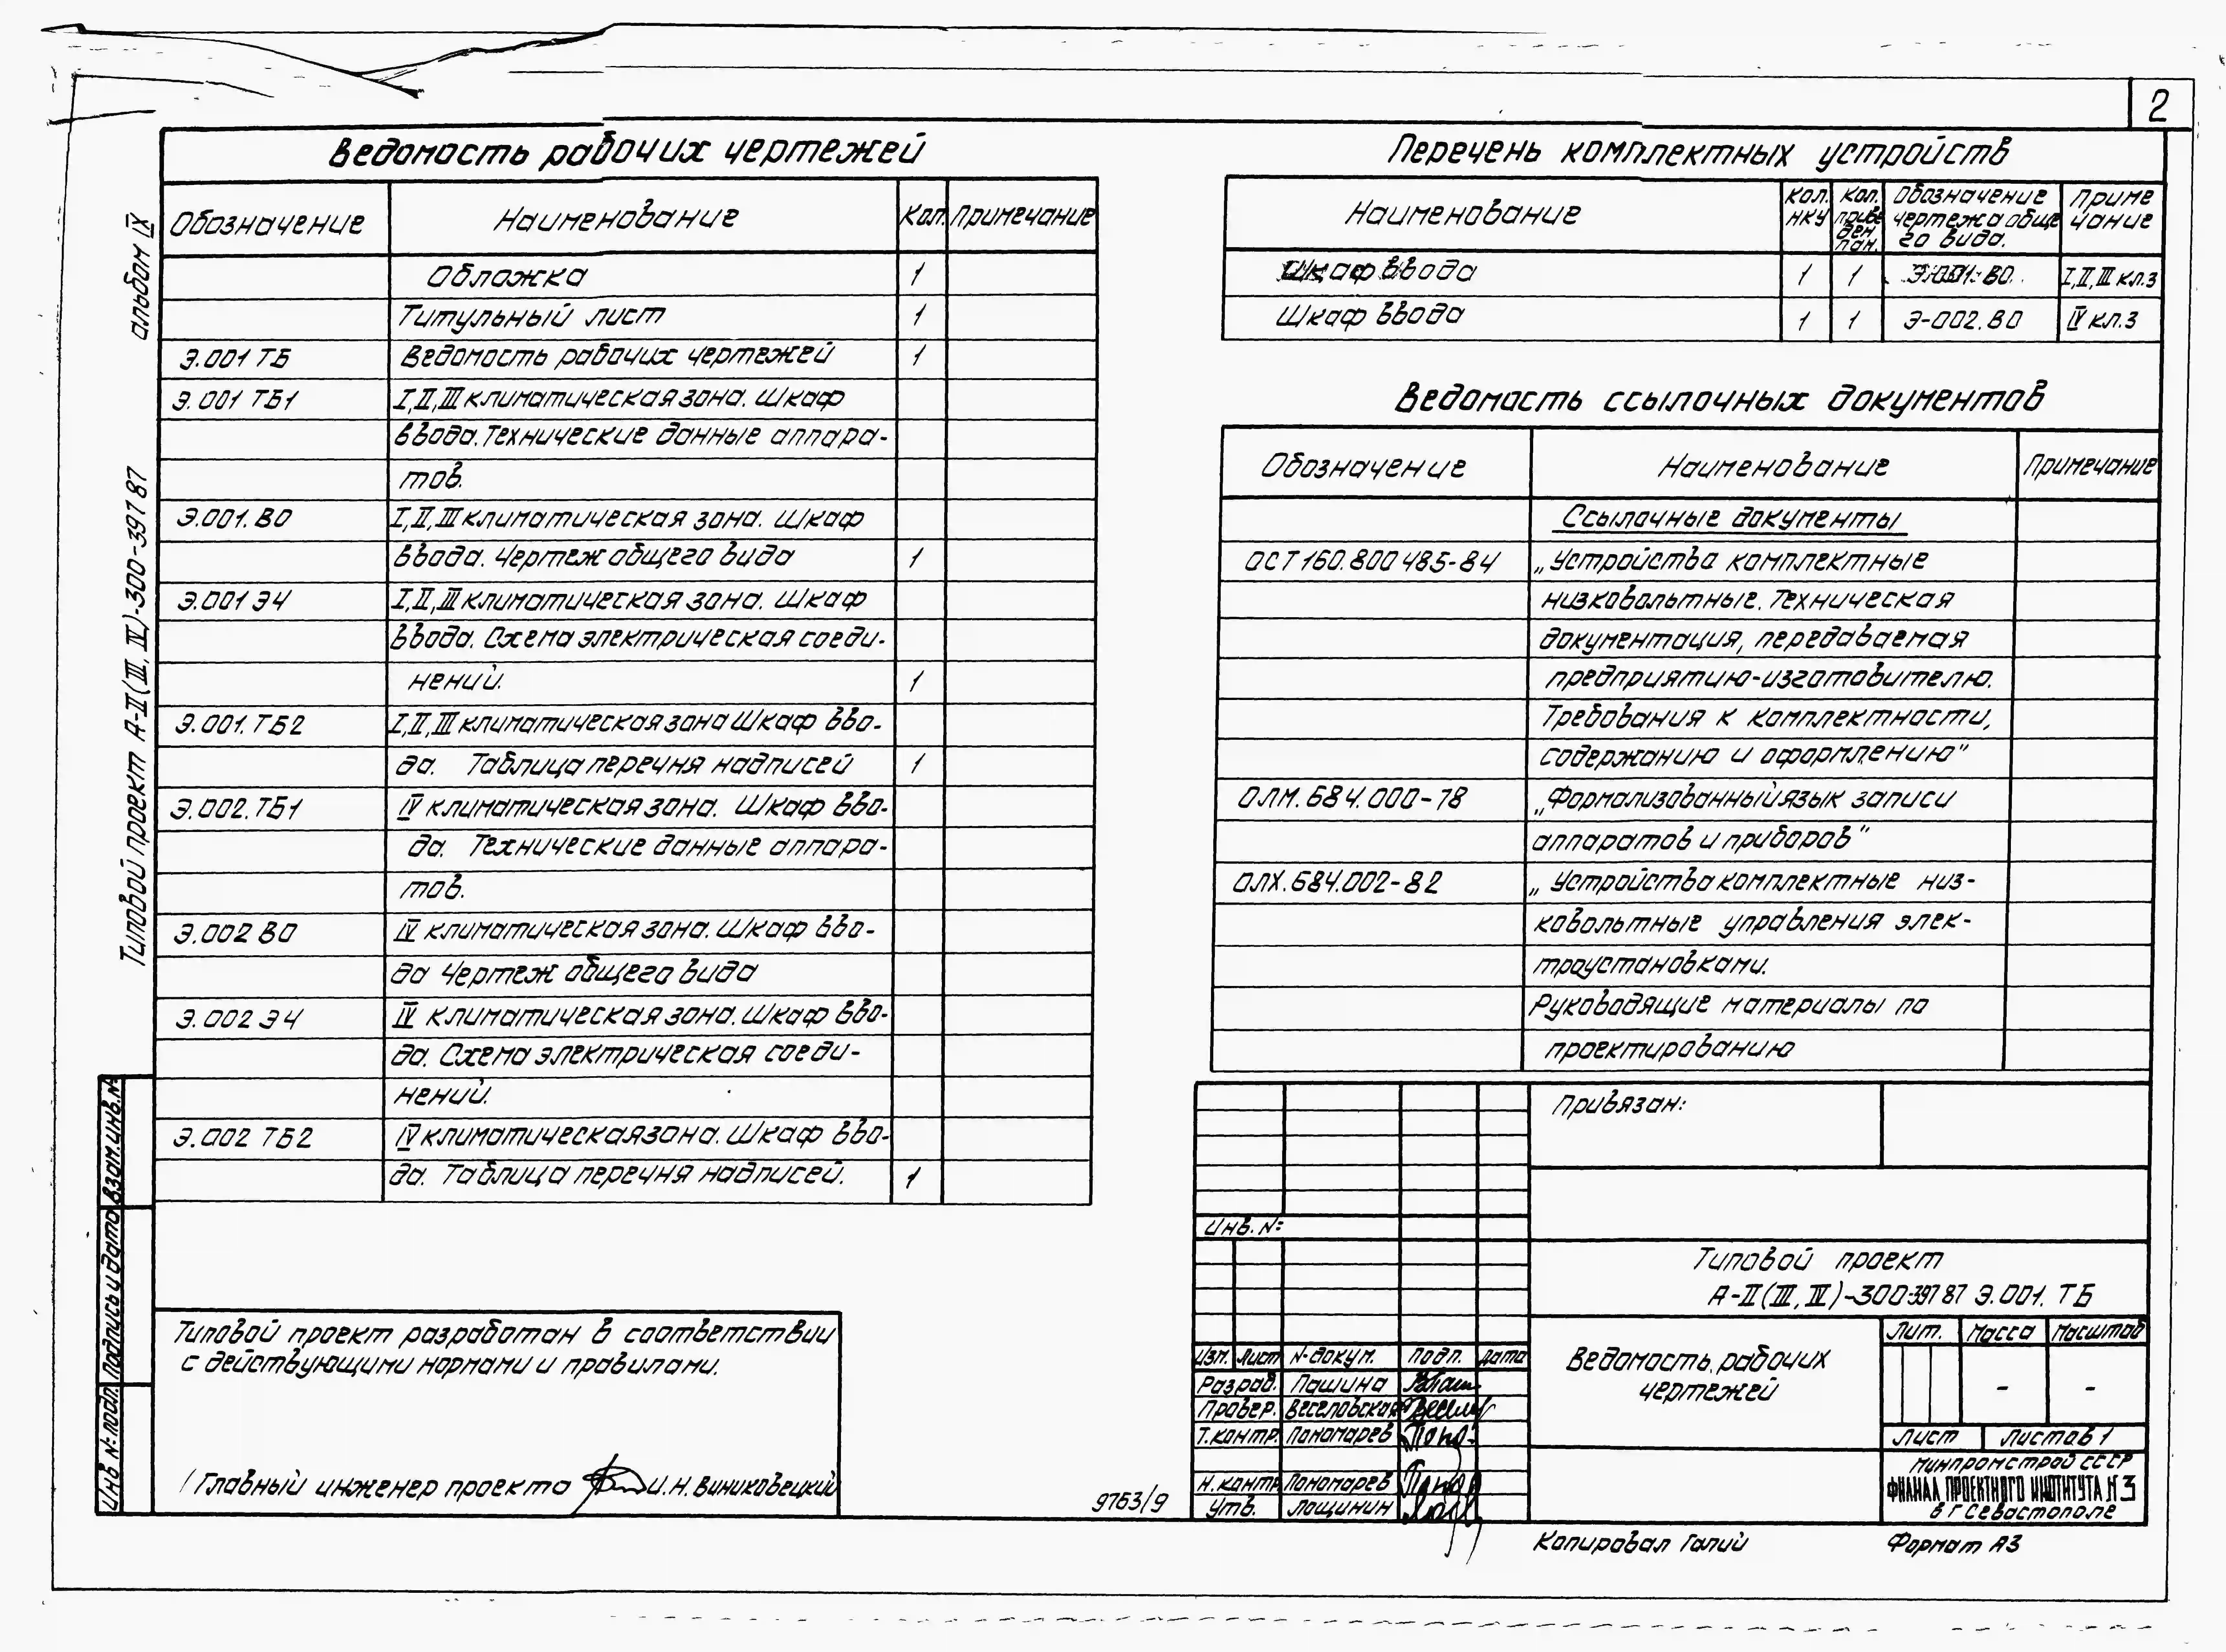 2
альбом IX
Типовой проект А-II(III, IV)-300-397 87
Ведомость рабочих чертежей
Обозначение Наименование Кол. Примечание
Обложка 1
Титульный лист 1
Э.001 ТБ Ведомость рабочих чертежей 1
Э.001 ТБ1 I,II,III климатическая зона. Шкаф
ввода. Технические данные аппара-
тов.
Э.001.ВО I,II,III климатическая зона. Шкаф
ввода. Чертеж общего вида 1
Э.001 Э4 I,II,III климатическая зона. Шкаф
ввода. Схема электрическая соеди-
нений. 1
Э.001.ТБ2 I,II,III климатическая зона Шкаф вво-
да. Таблица перечня надписей 1
Э.002.ТБ1 IV климатическая зона. Шкаф вво-
да. Технические данные аппара-
тов.
Э.002 ВО IV климатическая зона. Шкаф вво-
да Чертеж общего вида
Э.002 Э4 IV климатическая зона. Шкаф вво-
да. Схема электрическая соеди-
нений.
Э.002 ТБ2 IV климатическая зона. Шкаф вво-
да. Таблица перечня надписей. 1
Перечень комплектных устройств
Наименование Кол. НКУ Кол. приве ден. пан. Обозначение чертежа обще го вида. Приме чание
Шкаф ввода 1 1 Э-001.ВО. I,II,III кл.з
Шкаф ввода 1 1 Э-002.ВО IV кл.з
Ведомость ссылочных документов
Обозначение Наименование Примечание
Ссылочные документы
ОСТ 160.800 485-84 „Устройства комплектные
низковольтные. Техническая
документация, передаваемая
предприятию-изготовителю.
Требования к комплектности,
содержанию и оформлению"
ОЛМ.684.000-78 „Формализованный язык записи
аппаратов и приборов"
ОЛХ.684.002-82 „Устройства комплектные низ-
ковольтные управления элек-
троустановками.
Руководящие материалы по
проектированию
Типовой проект разработан в соответствии
с действующими нормами и правилами.
/ Главный инженер проекта И.Н. Виниковецкий
Инв N: подл. Подпись и дата Взам.инв.N
9763/9
Привязан:
Инв. N:
Типовой проект
А-II(III, IV)-300-397 87 Э.001. ТБ
Изм. Лист N-докум. Подп. Дата
Разраб. Пашина
Провер. Веселовская
Т.контр. Пономарев
Н.контр. Пономарев
Утв. Лощинин
Ведомость рабочих
чертежей
Лит. Масса Масштаб
- -
Лист Листов 1
Минпромстрой СССР
ФИЛИАЛ ПРОЕКТНОГО ИНСТИТУТА N 3
в г Севастополе
Копировал Галий Формат А3